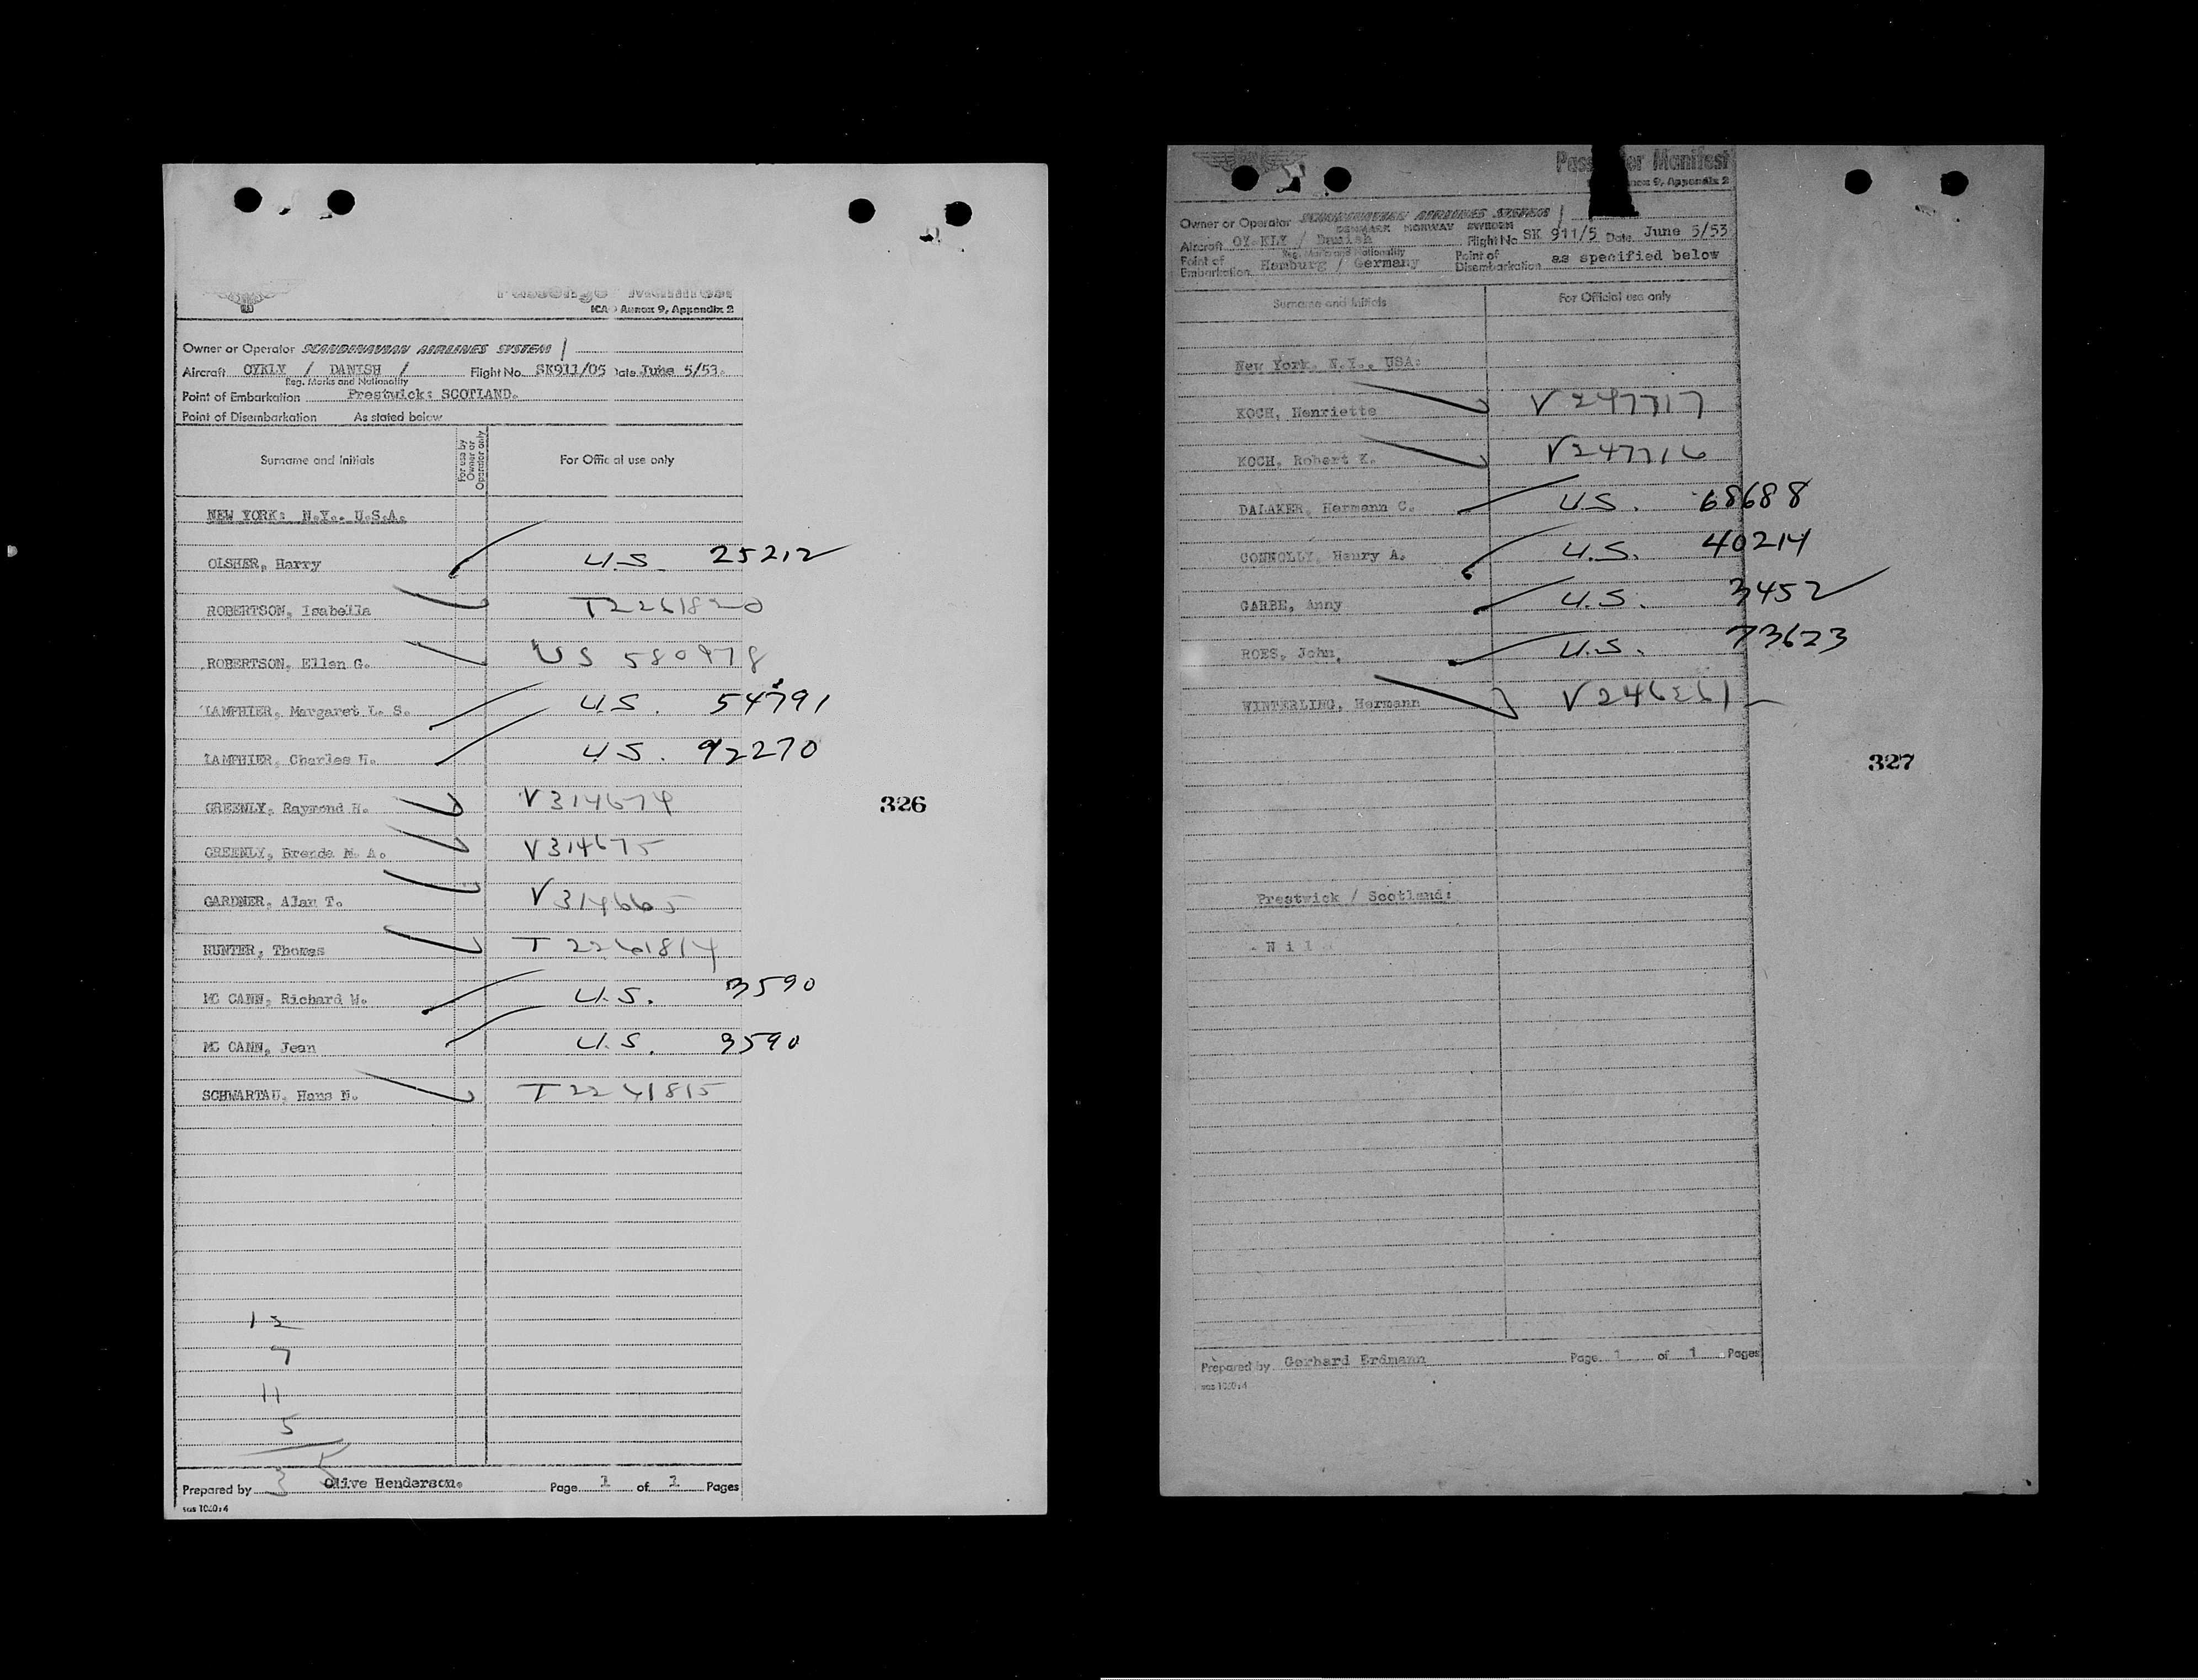 ICAO Annex 9, Appendix 2
Owner or Operator SCANDINAVIAN AIRLINES SYSTEM
Aircraft OYKLY / DANISH / Flight No. SK911/05 Date June 5/53.
Reg. Marks and Nationality
Point of Embarkation Prestwick: SCOTLAND.
Point of Disembarkation As stated below
Surname and Initials For use by Owner or Operator only For Official use only
NEW YORK: N.Y. U.S.A.
OLSHER, Harry U.S. 25212
ROBERTSON, Isabella T2261820
ROBERTSON, Ellen G. US 580978
LAMPHIER, Margaret L. S. U.S. 54791
LAMPHIER, Charles H. U.S. 92270
GREENLY, Raymond H. V314674
GREENLY, Brenda M. A. V314675
GARDNER, Alan T. V314665
HUNTER, Thomas T 2261814
MC CANN, Richard W. U.S. 3590
MC CANN, Jean U.S. 3590
SCHWARTAU, Hans N. T 2261815
326
12
7
11
5
35
Prepared by Olive Henderson. Page 1 of 1 Pages
sas 1020:4
Passenger Manifest
Annex 9, Appendix 2
Owner or Operator SCANDINAVIAN AIRLINES SYSTEM
DENMARK NORWAY SWEDEN
Aircraft OY-KLY / Danish Flight No SK 911/5 Date June 5/53
Reg. Marks and Nationality
Point of Embarkation Hamburg / Germany Point of Disembarkation as specified below
Surname and Initials For Official use only
New York, N.Y., USA:
KOCH, Henriette V 247717
KOCH, Robert K. V247716
DALAKER, Hermann C. U.S. 68688
CONNOLLY, Henry A. U.S. 40214
GARBE, Anny U.S. 3452
ROES, John, U.S. 73623
WINTERLING, Hermann V246261
327
Prestwick / Scotland:
- N i l -
Prepared by Gerhard Erdmann Page 1 of 1 Pages
sas 1020:4